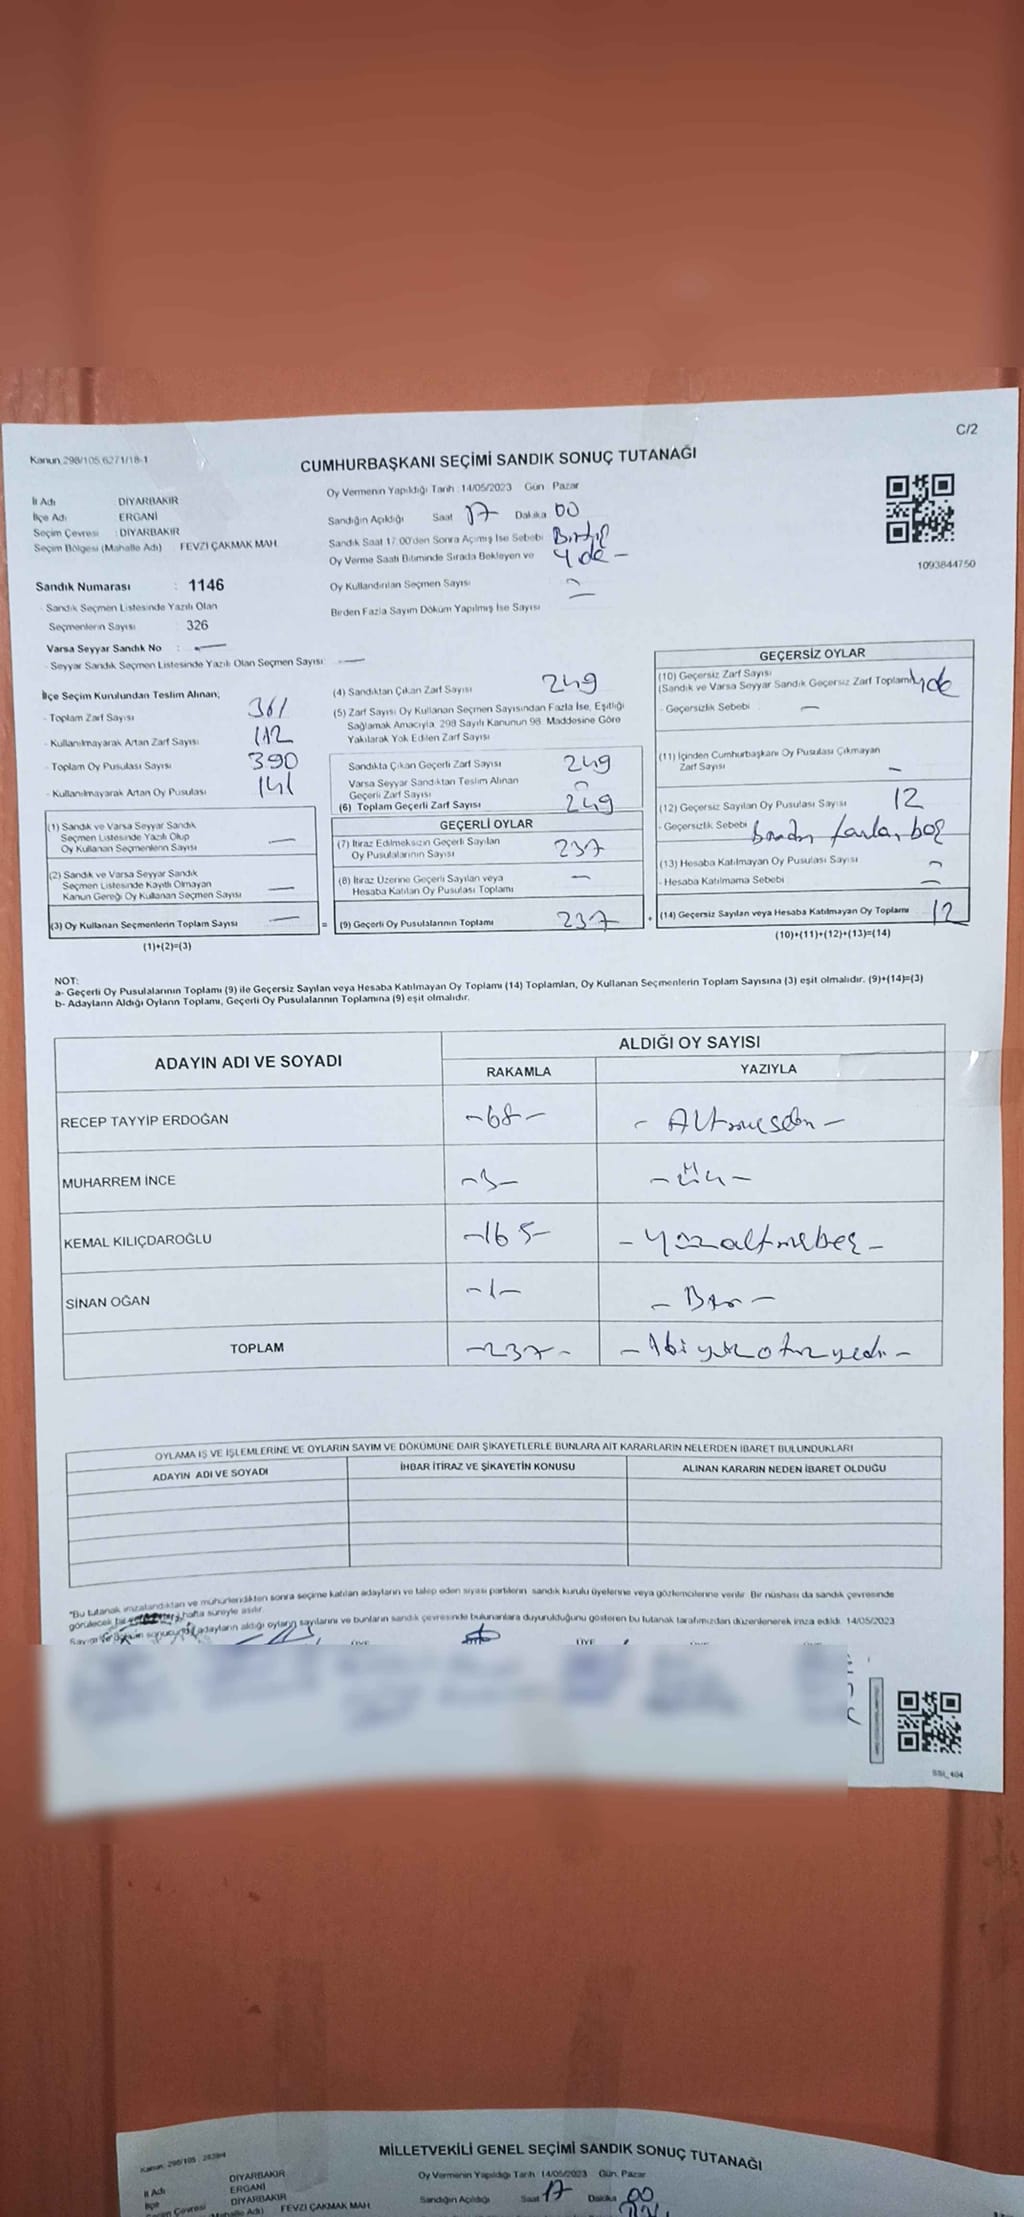 C/2
Kanun 298/105,6271/18-1
CUMHURBAŞKANI SEÇİMİ SANDIK SONUÇ TUTANAĞI
İl Adı DİYARBAKIR
İlçe Adı ERGANİ
Seçim Çevresi : DİYARBAKIR
Seçim Bölgesi (Mahalle Adı) FEVZİ ÇAKMAK MAH.
Oy Vermenin Yapıldığı Tarih : 14/05/2023 Gün Pazar
Sandığın Açıldığı Saat 17 Dakika 00
Sandık Saat 17:00'den Sonra Açılmış İse Sebebi
Oy Verme Saati Bitiminde Sırada Bekleyen ve
Oy Kullandırılan Seçmen Sayısı
Birden Fazla Sayım Döküm Yapılmış İse Sayısı
1093844750
Sandık Numarası : 1146
- Sandık Seçmen Listesinde Yazılı Olan
Seçmenlerin Sayısı : 326
Varsa Seyyar Sandık No : —
- Seyyar Sandık Seçmen Listesinde Yazılı Olan Seçmen Sayısı: —
İlçe Seçim Kurulundan Teslim Alınan;
- Toplam Zarf Sayısı 361
- Kullanılmayarak Artan Zarf Sayısı 112
- Toplam Oy Pusulası Sayısı 390
- Kullanılmayarak Artan Oy Pusulası 141
(1) Sandık ve Varsa Seyyar Sandık
Seçmen Listesinde Yazılı Olup
Oy Kullanan Seçmenlerin Sayısı —
(2) Sandık ve Varsa Seyyar Sandık
Seçmen Listesinde Kayıtlı Olmayan
Kanun Gereği Oy Kullanan Seçmen Sayısı —
(3) Oy Kullanan Seçmenlerin Toplam Sayısı —
(1)+(2)=(3)
(4) Sandıktan Çıkan Zarf Sayısı 249
(5) Zarf Sayısı Oy Kullanan Seçmen Sayısından Fazla İse, Eşitliği
Sağlamak Amacıyla, 298 Sayılı Kanunun 98. Maddesine Göre
Yakılarak Yok Edilen Zarf Sayısı
Sandıkta Çıkan Geçerli Zarf Sayısı 249
Varsa Seyyar Sandıktan Teslim Alınan
Geçerli Zarf Sayısı —
(6) Toplam Geçerli Zarf Sayısı 249
GEÇERLİ OYLAR
(7) İtiraz Edilmeksizin Geçerli Sayılan
Oy Pusulalarının Sayısı 237
(8) İtiraz Üzerine Geçerli Sayılan veya
Hesaba Katılan Oy Pusulası Toplamı —
= (9) Geçerli Oy Pusulalarının Toplamı 237 +
GEÇERSİZ OYLAR
(10) Geçersiz Zarf Sayısı
(Sandık ve Varsa Seyyar Sandık Geçersiz Zarf Toplamı)
- Geçersizlik Sebebi —
(11) İçinden Cumhurbaşkanı Oy Pusulası Çıkmayan
Zarf Sayısı —
(12) Geçersiz Sayılan Oy Pusulası Sayısı 12
- Geçersizlik Sebebi birden fazla, boş
(13) Hesaba Katılmayan Oy Pusulası Sayısı —
- Hesaba Katılmama Sebebi —
(14) Geçersiz Sayılan veya Hesaba Katılmayan Oy Toplamı 12
(10)+(11)+(12)+(13)=(14)
NOT:
a- Geçerli Oy Pusulalarının Toplamı (9) ile Geçersiz Sayılan veya Hesaba Katılmayan Oy Toplamı (14) Toplamları, Oy Kullanan Seçmenlerin Toplam Sayısına (3) eşit olmalıdır. (9)+(14)=(3)
b- Adayların Aldığı Oyların Toplamı, Geçerli Oy Pusulalarının Toplamına (9) eşit olmalıdır.
ADAYIN ADI VE SOYADI ALDIĞI OY SAYISI
RAKAMLA YAZIYLA
RECEP TAYYİP ERDOĞAN -68- - Altmışsekiz -
MUHARREM İNCE -3- - Üç -
KEMAL KILIÇDAROĞLU -165- - Yüzaltmışbeş -
SİNAN OĞAN -1- - Bir -
TOPLAM -237- - İkiyüzotuzyedi -
OYLAMA İŞ VE İŞLEMLERİNE VE OYLARIN SAYIM VE DÖKÜMÜNE DAİR ŞİKAYETLERLE BUNLARA AİT KARARLARIN NELERDEN İBARET BULUNDUKLARI
ADAYIN ADI VE SOYADI İHBAR İTİRAZ VE ŞİKAYETİN KONUSU ALINAN KARARIN NEDEN İBARET OLDUĞU
"Bu tutanak imzalandıktan ve mühürlendikten sonra seçime katılan adayların ve talep eden siyasi partilerin sandık kurulu üyelerine veya gözlemcilerine verilir. Bir nüshası da sandık çevresinde
görülecek bir hafta süreyle asılır.
Sayım ve döküm sonucunda adayların aldığı oyların sayılarını ve bunların sandık çevresinde bulunanlara duyurulduğunu gösteren bu tutanak tarafımızdan düzenlenerek imza edildi. 14/05/2023
ÜYE
SSL_404
MİLLETVEKİLİ GENEL SEÇİMİ SANDIK SONUÇ TUTANAĞI
İl Adı DİYARBAKIR
İlçe ERGANİ
Seçim Çevresi DİYARBAKIR
FEVZİ ÇAKMAK MAH.
Oy Vermenin Yapıldığı Tarih 14/05/2023 Gün Pazar
Sandığın Açıldığı Saat 17 Dakika 00